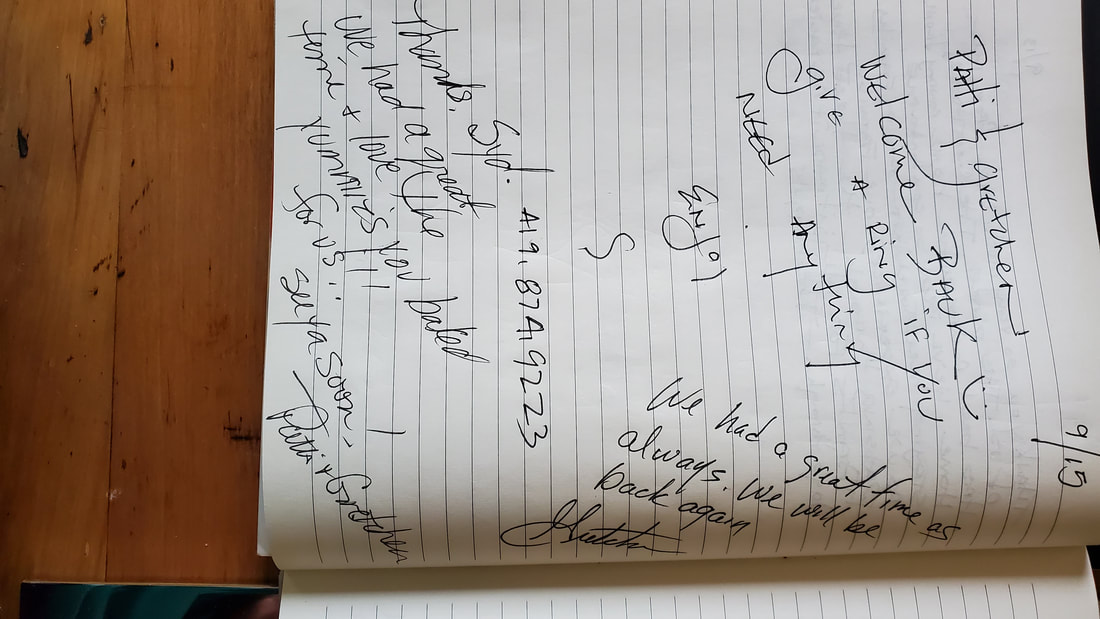 9/15
Patti & Gretchen
Welcome BACK
give A Ring iF you
NEED Anything
Enjoy
S
419.874.9223
We had a great time as
always. We will be
back again
Thanks, Syd.
We had a great
time & love the
yummies you baked
for us!!
See ya soon,
Patti & Gretchen